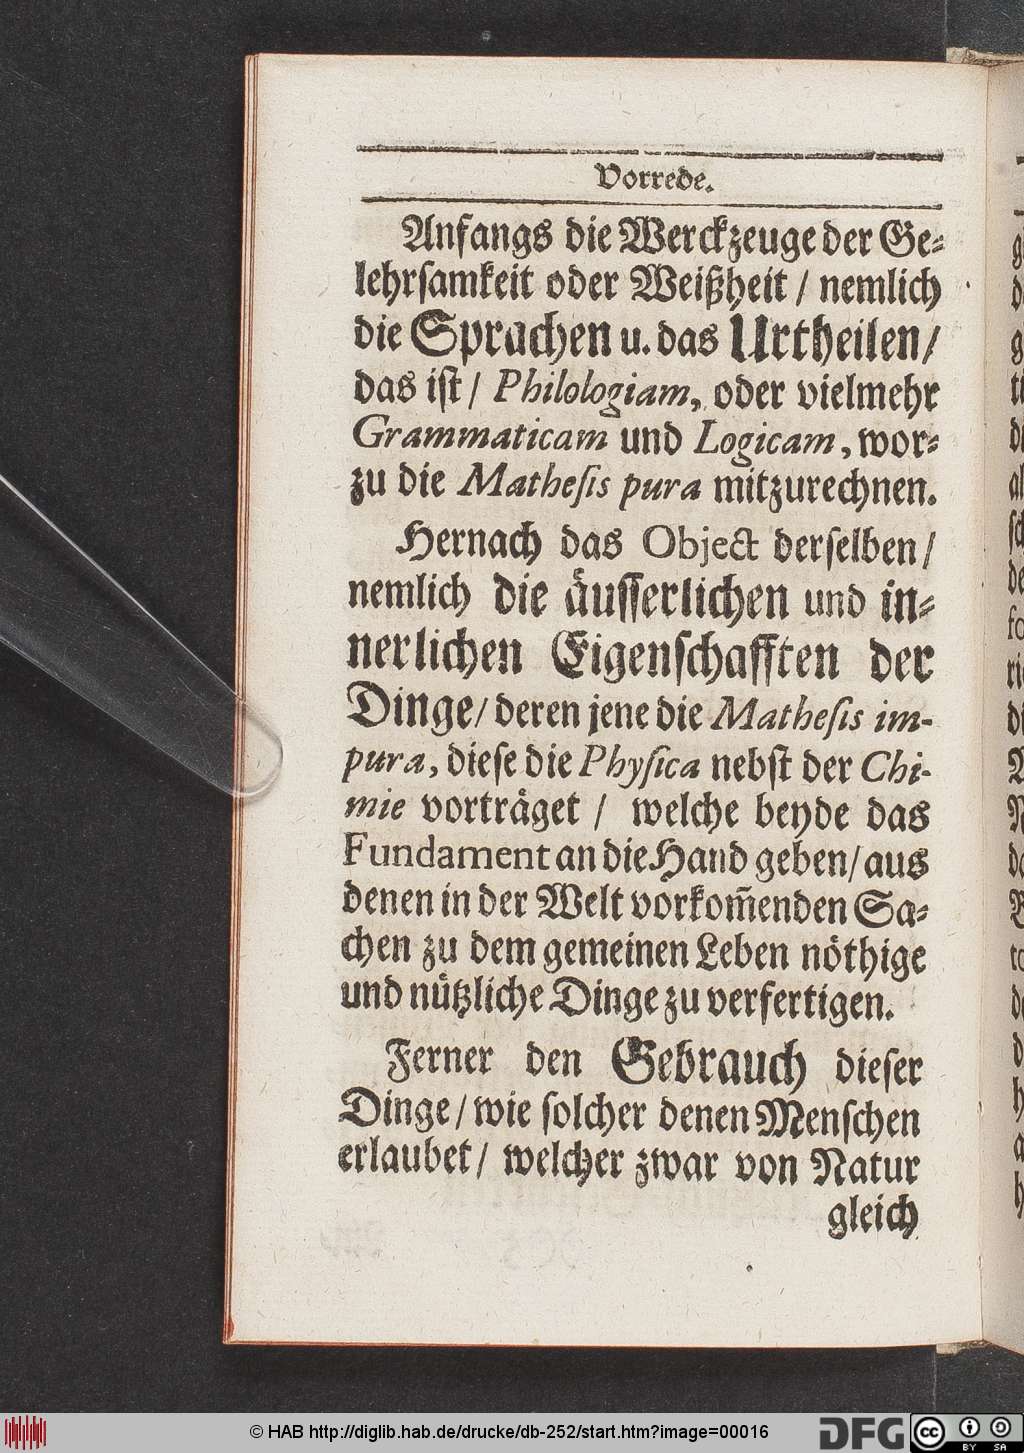 Vorrede.
Anfangs die Werckzeuge der Ge-
lehrsamkeit oder Weißheit / nemlich
die Sprachen u. das Urtheilen /
das ist / Philologiam, oder vielmehr
Grammaticam und Logicam, wor-
zu die Mathesis pura mitzurechnen.
Hernach das Object derselben /
nemlich die äusserlichen und in-
nerlichen Eigenschafften der
Dinge / deren jene die Mathesis im-
pura, diese die Physica nebst der Chi-
mie vorträget / welche beyde das
Fundament an die Hand geben / aus
denen in der Welt vorkom̃enden Sa-
chen zu dem gemeinen Leben nöthige
und nützliche Dinge zu verfertigen.
Ferner den Gebrauch dieser
Dinge / wie solcher denen Menschen
erlaubet / welcher zwar von Natur
gleich
© HAB http://diglib.hab.de/drucke/db-252/start.htm?image=00016
DFG
cc BY SA